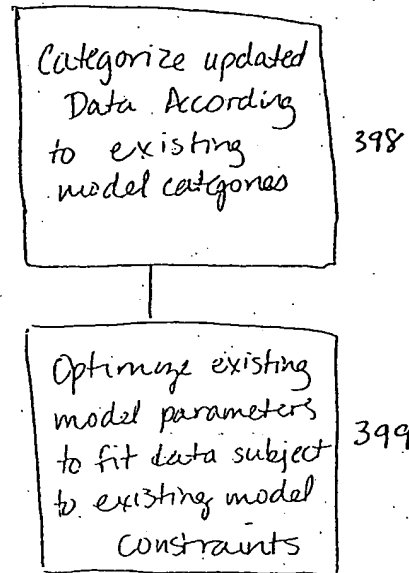 Categorize updated
Data According
to existing
model categories
398
Optimize existing
model parameters
to fit data subject
to existing model
constraints
399